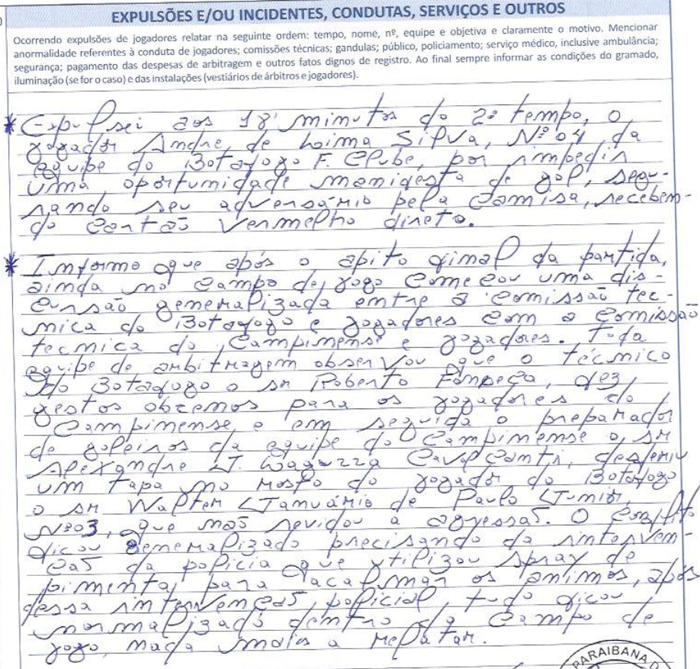 EXPULSÕES E/OU INCIDENTES, CONDUTAS, SERVIÇOS E OUTROS
Ocorrendo expulsões de jogadores relatar na seguinte ordem: tempo, nome, nº, equipe e objetiva e claramente o motivo. Mencionar
anormalidade referentes à conduta de jogadores; comissões técnicas; gandulas; público, policiamento; serviço médico, inclusive ambulância;
segurança; pagamento das despesas de arbitragem e outros fatos dignos de registro. Ao final sempre informar as condições do gramado,
iluminação (se for o caso) e das instalações (vestiários de árbitros e jogadores).
* Expulsei aos 18' minutos do 2º tempo, o
jogador Andre, de Loima Silva, Nº 04, da
equipe do Botafogo F. Clube, por impedir
uma oportunidade manifesta de gol, segu-
rando seu adversário pela camisa, receben-
do cartão vermelho direto.
* Informo que após o apito final da partida,
ainda no campo de jogo começou uma dis-
cursão generalizada entre a comissão tec-
nica do Botafogo e jogadores com a comissão
tecnica do Campinense e jogadores. Toda
equipe de arbitragem observou que o técnico
do Botafogo o sr Roberto Fonseça, dez
gestos obcenos para os jogadores do
Campinense e em seguida o preparador
de goleiros da equipe do Campinense o sr
Alexandre J. Cavalcanti, desferiu
um tapa no rosto do jogador do Botafogo
o sr Walter Januário de Paulo Junior,
Nº 03, que não revidou a agressão. O conflito
ficou generalizado precisando da interven-
ção da policia que utilizou spray de
pimenta, para acalmar os animos, após
dessa intervenção policial, tudo ficou
normalizado dentro do campo de
jogo, nada mais a relatar.
PARAIBANA D